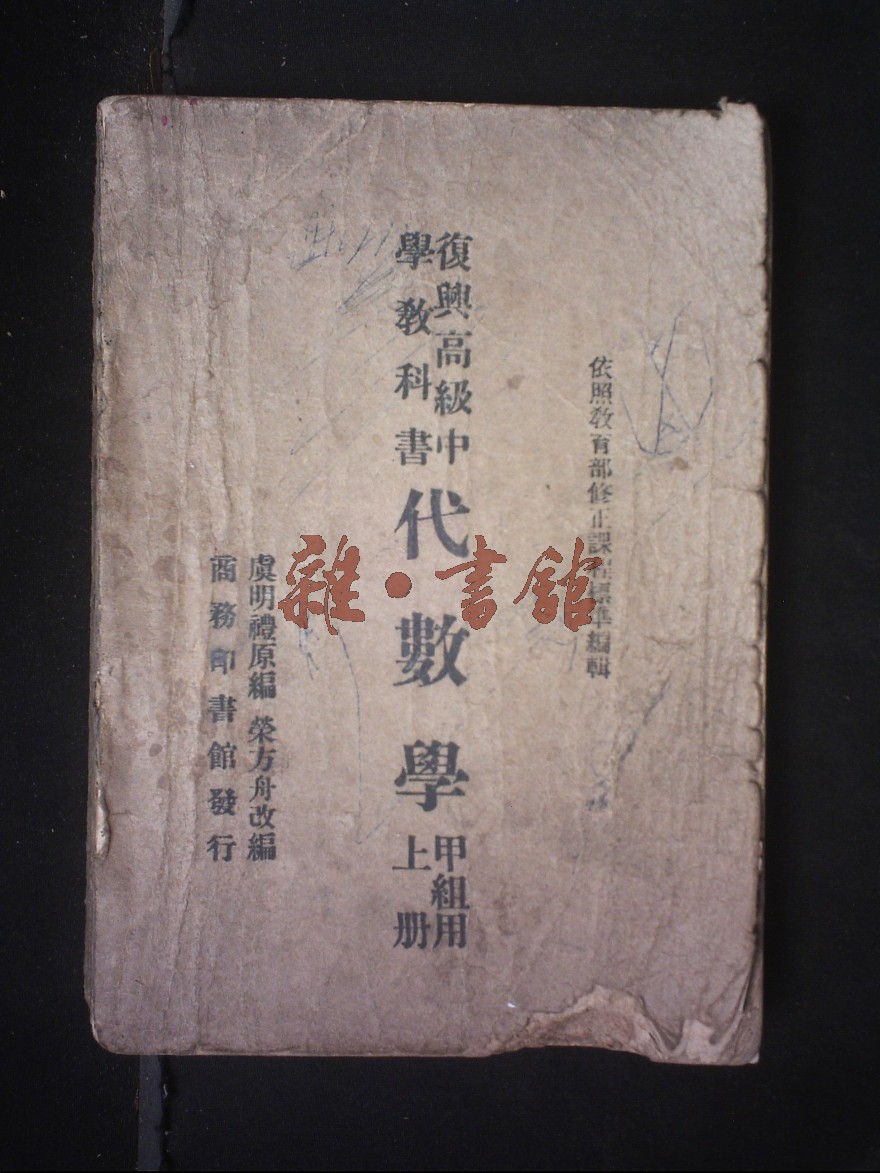 依照教育部修正課程標準編輯
復興高級中
學教科書
代數學
甲組用
上册
虞明禮原編 榮方舟改編
商務印書館發行
雜·書館